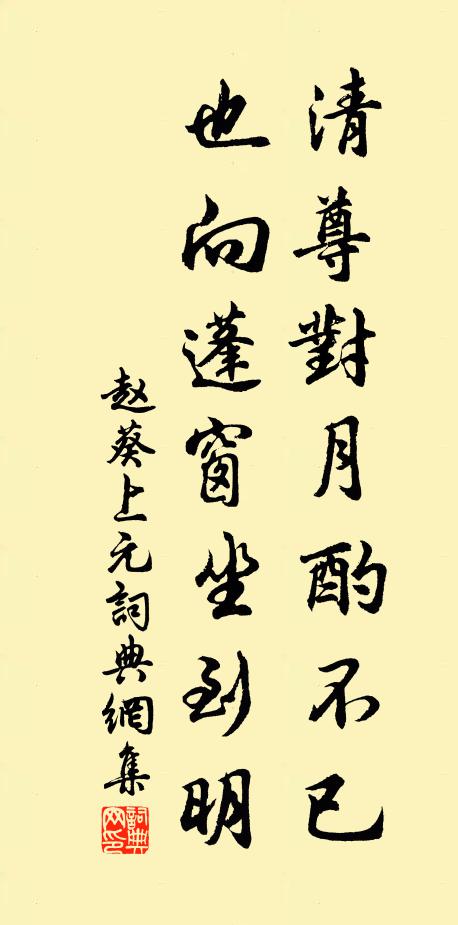 清尊對月酌不已
也向蓬窗坐到明
赵葵上元詞典網集
詞典网印